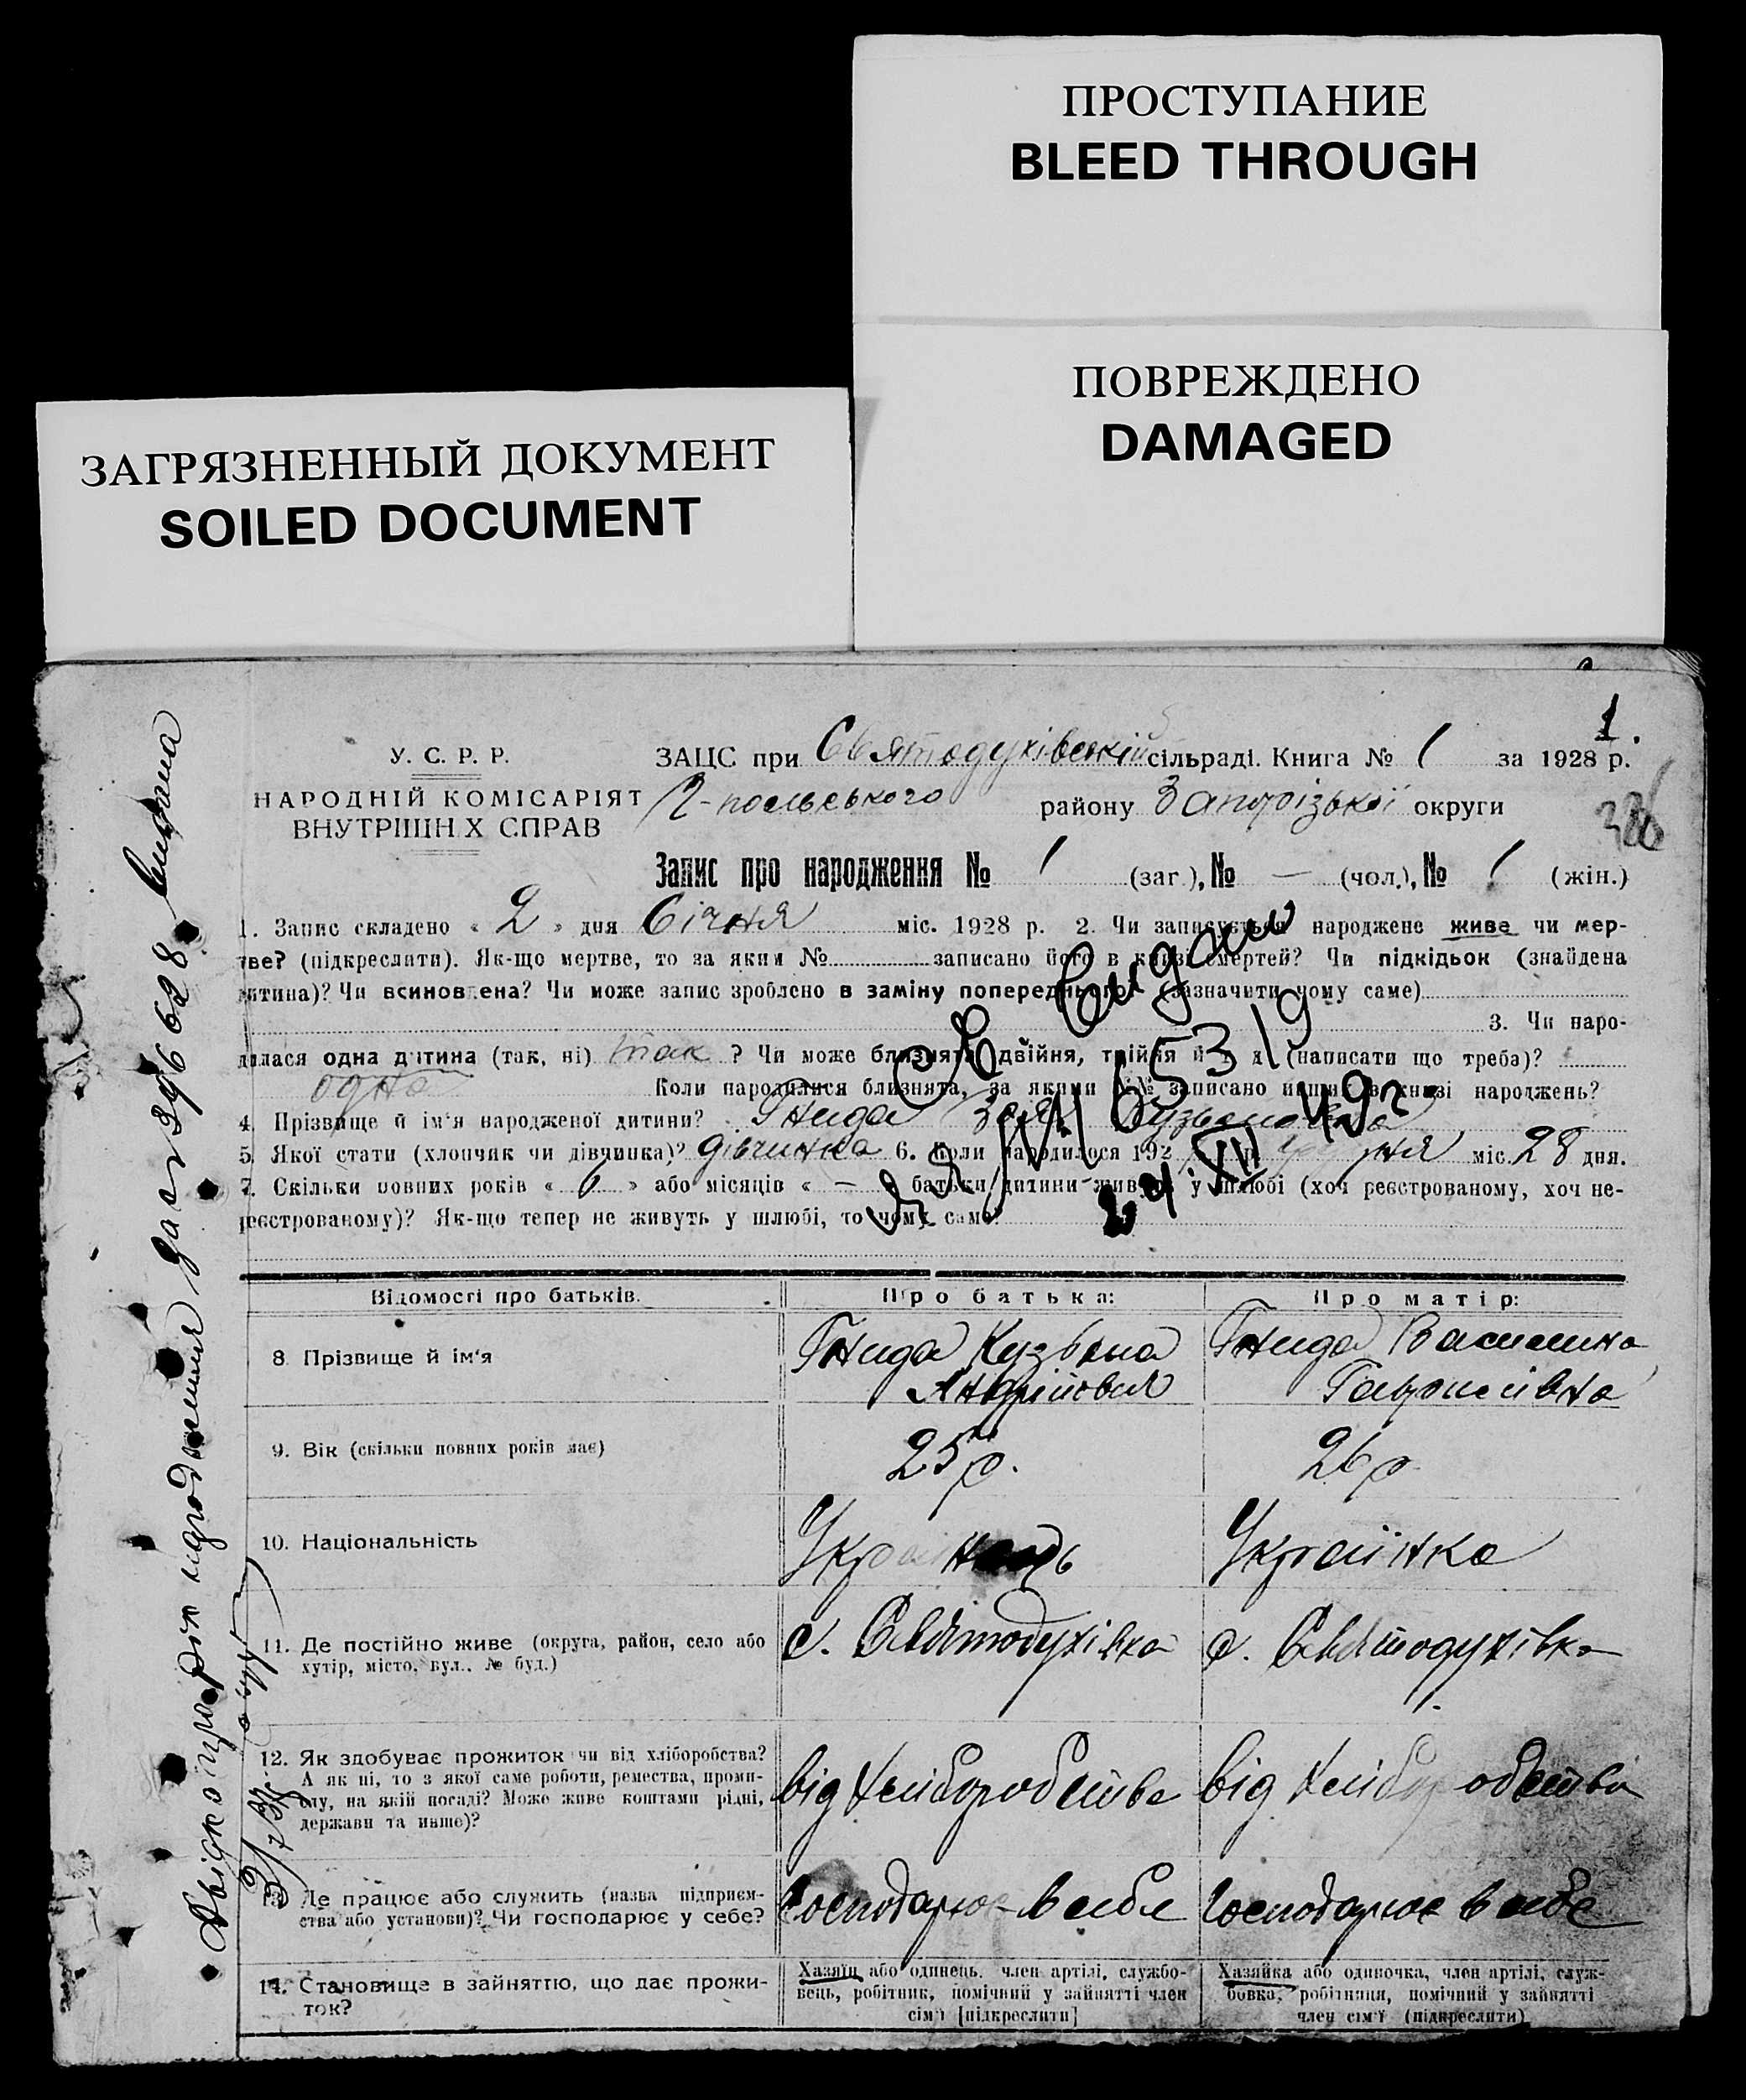 ПРОСТУПАНИЕ
BLEED THROUGH
ПОВРЕЖДЕНО
DAMAGED
ЗАГРЯЗНЕННЫЙ ДОКУМЕНТ
SOILED DOCUMENT
1.
У. С. Р. Р.
НАРОДНІЙ КОМІСАРІЯТ
ВНУТРІШН Х СПРАВ
ЗАЦС при Святодухівській сільраді. Книга № 1 за 1928 р.
району Запорізької округи
Запис про народження № 1 (заг.), № — (чол.), № 1 (жін.)
1. Запис складено « 2 » дня Січня міс. 1928 р. 2. Чи записується народжене живе чи мер-
тве? (підкреслити). Як-що мертве, то за яким № записано його в книзі смертей? Чи підкідьок (знайдена
итина)? Чи всиновлена? Чи може запис зроблено в заміну попереднього (зазначити чому саме)
3. Чи наро-
дилася одна дитина (так, ні) так ? Чи може близнята, двійня, трійня й т. д. (написати що треба)?
одна Коли народилися близнята, за якими №№ записано инших в книзі народжень?
4. Прізвище й ім'я народженої дитини? Гнида Зоя Кузьмовна
5. Якої стати (хлопчик чи дівчинка)? дівчинка 6. Коли народилося 192 р. Грудня міс. 28 дня.
7. Скільки повних років « 6 » або місяців « — » батьки дитини живуть у шлюбі (хоч реєстрованому, хоч не-
реєстрованому)? Як-що тепер не живуть у шлюбі, то чому саме?
видано
№
24 XII 49 г.
Відомості про батьків.
Про батька:
Про матір:
8. Прізвище й ім'я
Гнида Кузьма
Андрійович
Гнида Василина
Гаврилівна
9. Вік (скільки повних років має)
25 р.
26 р.
10. Національність
Українець
Українка
11. Де постійно живе (округа, район, село або
хутір, місто, вул.. № буд.)
с. Святодухівка
с. Святодухівка
12. Як здобуває прожиток чи від хліборобства?
А як ні, то з якої саме роботи, ремества, проми-
слу, на якій посаді? Може живе коштами рідні,
держави та инше)?
від хліборобства
від хліборобства
13. Де працює або служить (назва підприєм-
ства або установи)? Чи господарює у себе?
Господарює в себе
Господарює в себе
14. Становище в зайняттю, що дає прожи-
ток?
Хазяїн або одинець, член артілі, службо-
вець, робітник, помічний у зайнятті член
сім'ї [підкреслити]
Хазяйка або одиночка, член артілі, служ-
бовка, робітниця, помічний у зайнятті
член сім'ї (підкреслити)